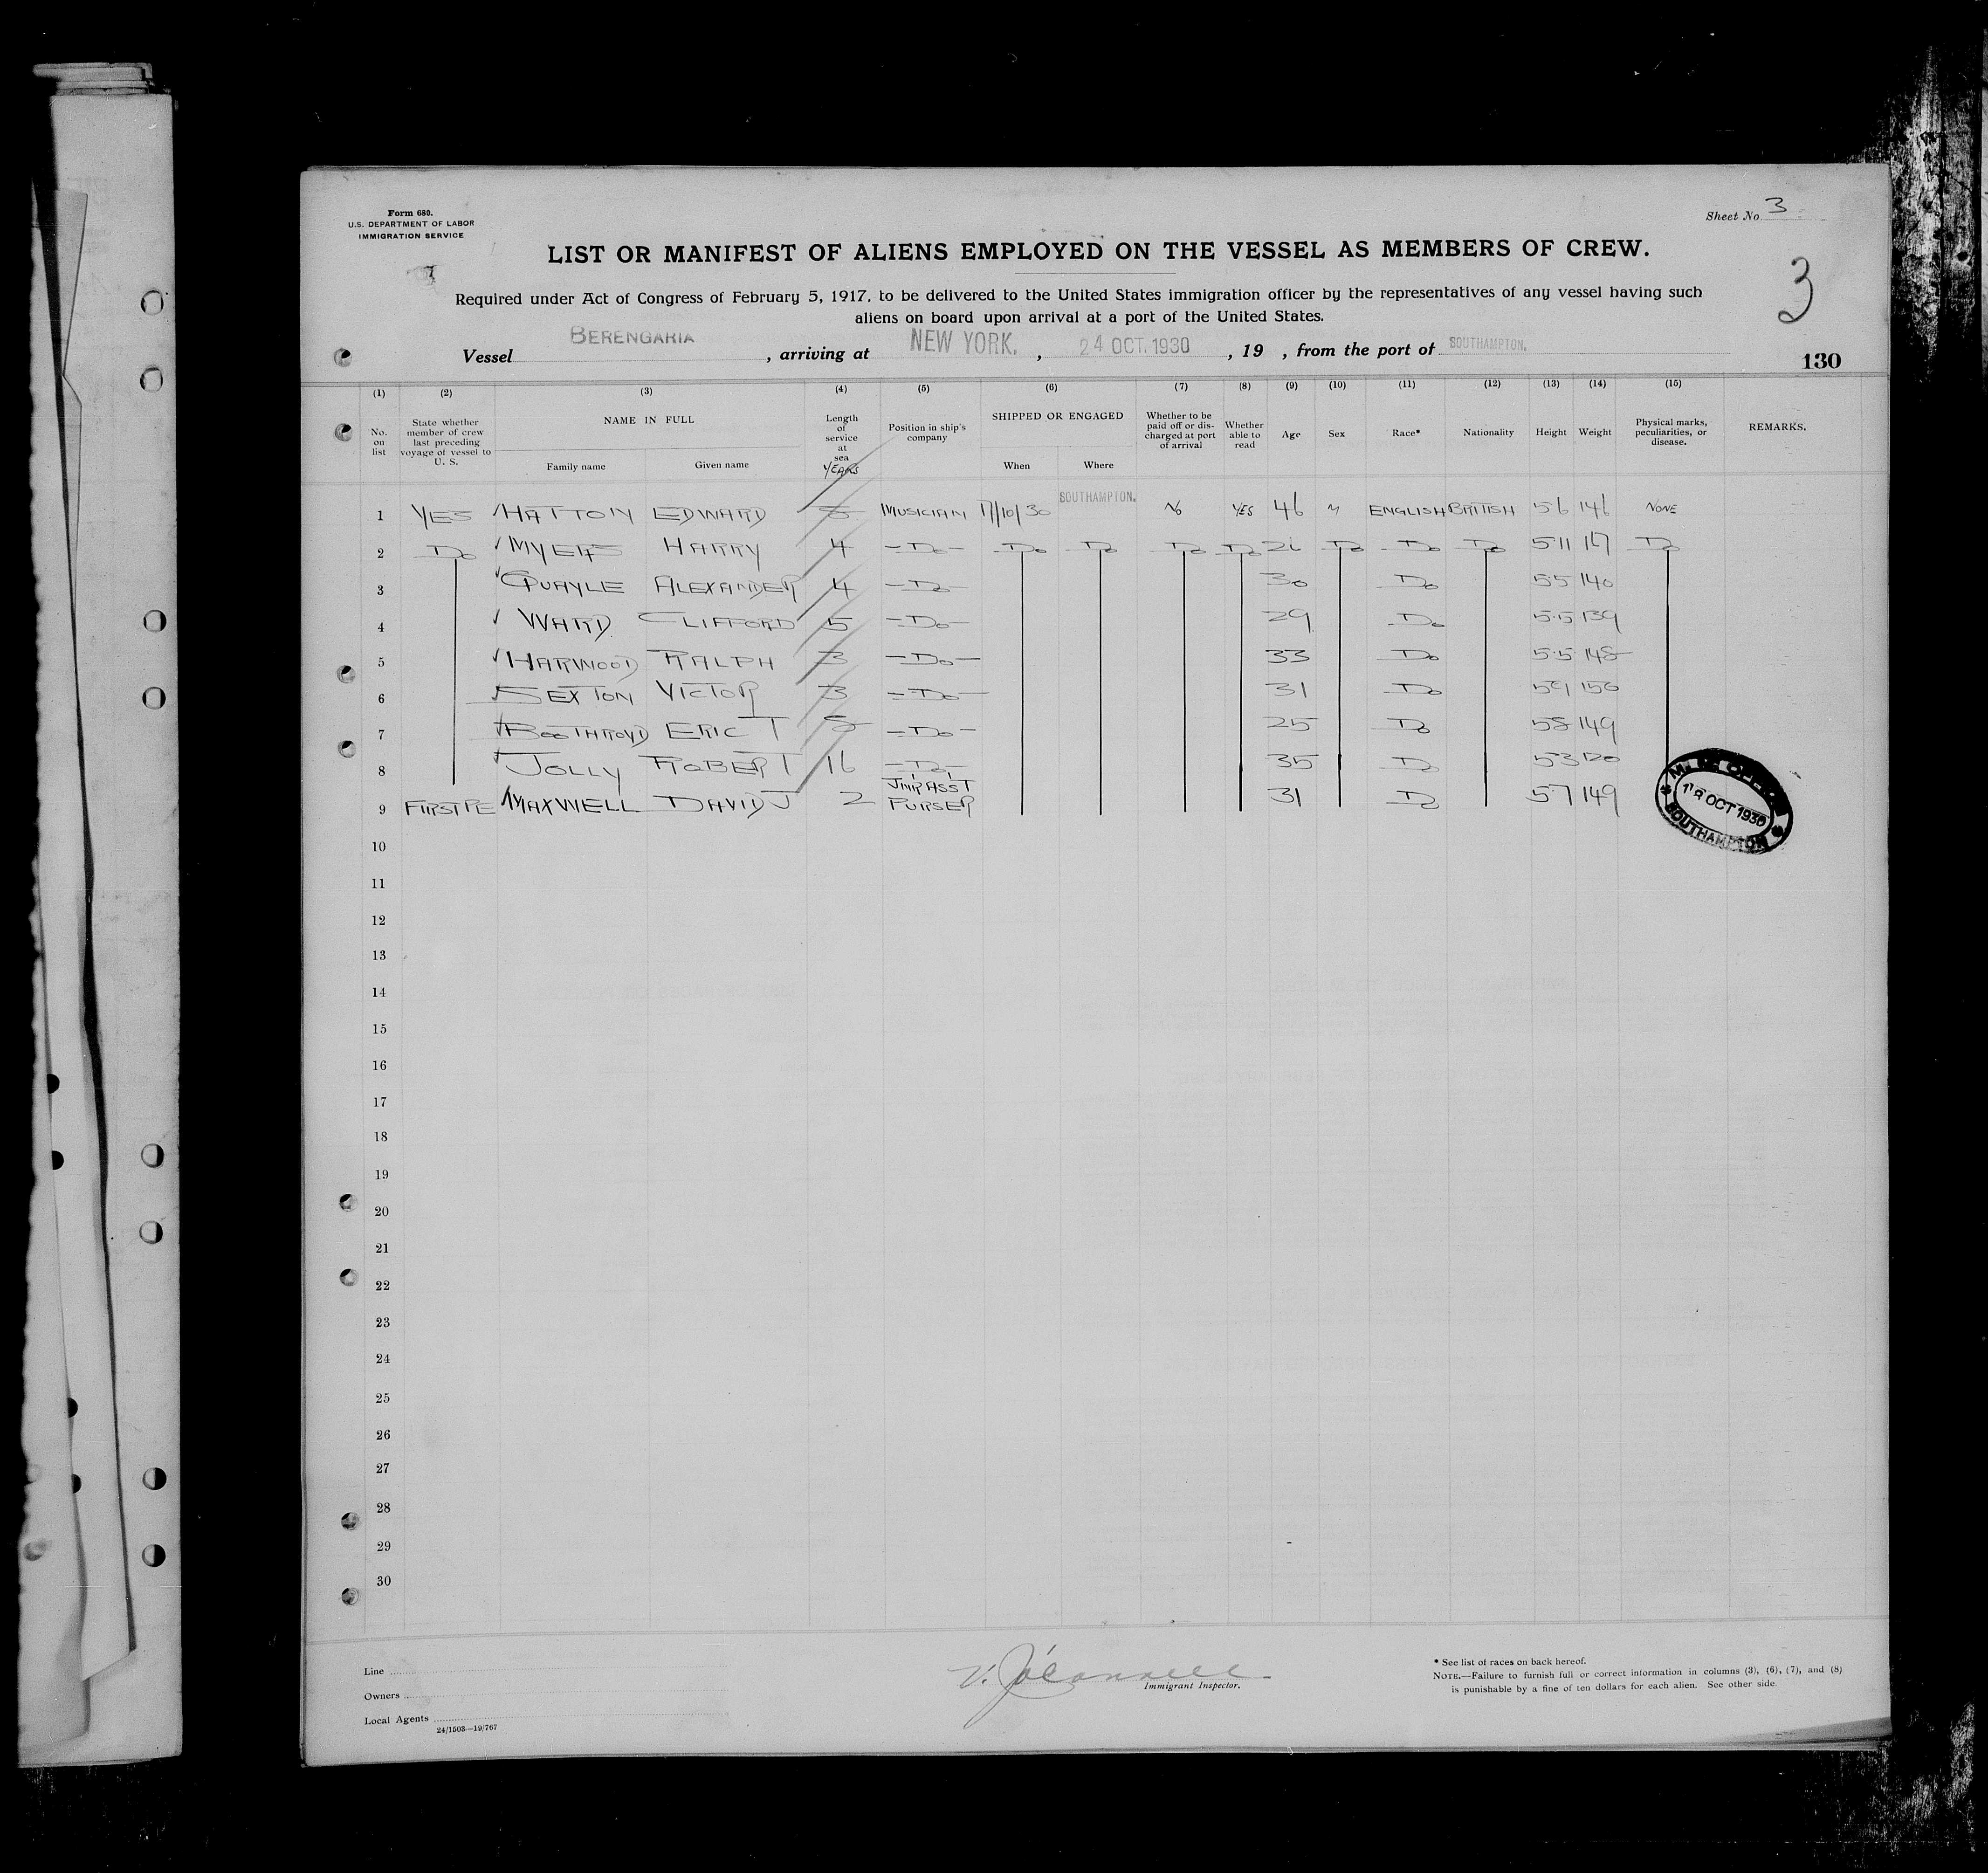 Form 680.
U.S. DEPARTMENT OF LABOR
IMMIGRATION SERVICE
Sheet No. 3
LIST OR MANIFEST OF ALIENS EMPLOYED ON THE VESSEL AS MEMBERS OF CREW.
3
Required under Act of Congress of February 5, 1917, to be delivered to the United States immigration officer by the representatives of any vessel having such
aliens on board upon arrival at a port of the United States.
Vessel BERENGARIA, arriving at NEW YORK. , 24 OCT. 1930 , 19 , from the port of SOUTHAMPTON.
130
(1) (2) (3) (4) (5) (6) (7) (8) (9) (10) (11) (12) (13) (14) (15)
No. on list State whether member of crew last preceding voyage of vessel to U. S. NAME IN FULL Family name Given name Length of service at sea YEARS Position in ship's company SHIPPED OR ENGAGED When Where Whether to be paid off or dis- charged at port of arrival Whether able to read Age Sex Race* Nationality Height Weight Physical marks, peculiarities, or disease. REMARKS.
1 YES HATTON EDWARD MUSICIAN 17/10/30 SOUTHAMPTON. No YES 46 M ENGLISH BRITISH 56 146 NONE
2 Do MYERS HARRY 4 Do Do Do Do Do 26 Do Do Do 511 Do
3 QUAYLE ALEXANDER 4 Do 30 Do 5·5 140
4 WARD CLIFFORD 5 Do 29 Do 5·5 139
5 HARWOOD RALPH 3 Do 33 Do 5·5 148
6 SEXTON VICTOR 3 Do 31 Do 59 156
7 BOOTHROYD ERIC T Do 25 Do 58 149
8 JOLLY ROBERT 16 Do 35 Do 53 120
9 MAXWELL DAVID J 2 JNR ASST PURSER 31 Do 57 149
18 OCT 1930
SOUTHAMPTON
10
11
12
13
14
15
16
17
18
19
20
21
22
23
24
25
26
27
28
29
30
Line
Owners
Local Agents
24/1503—19/767
V. J. O'Connell
Immigrant Inspector.
* See list of races on back hereof.
NOTE.—Failure to furnish full or correct information in columns (3), (6), (7), and (8)
is punishable by a fine of ten dollars for each alien. See other side.